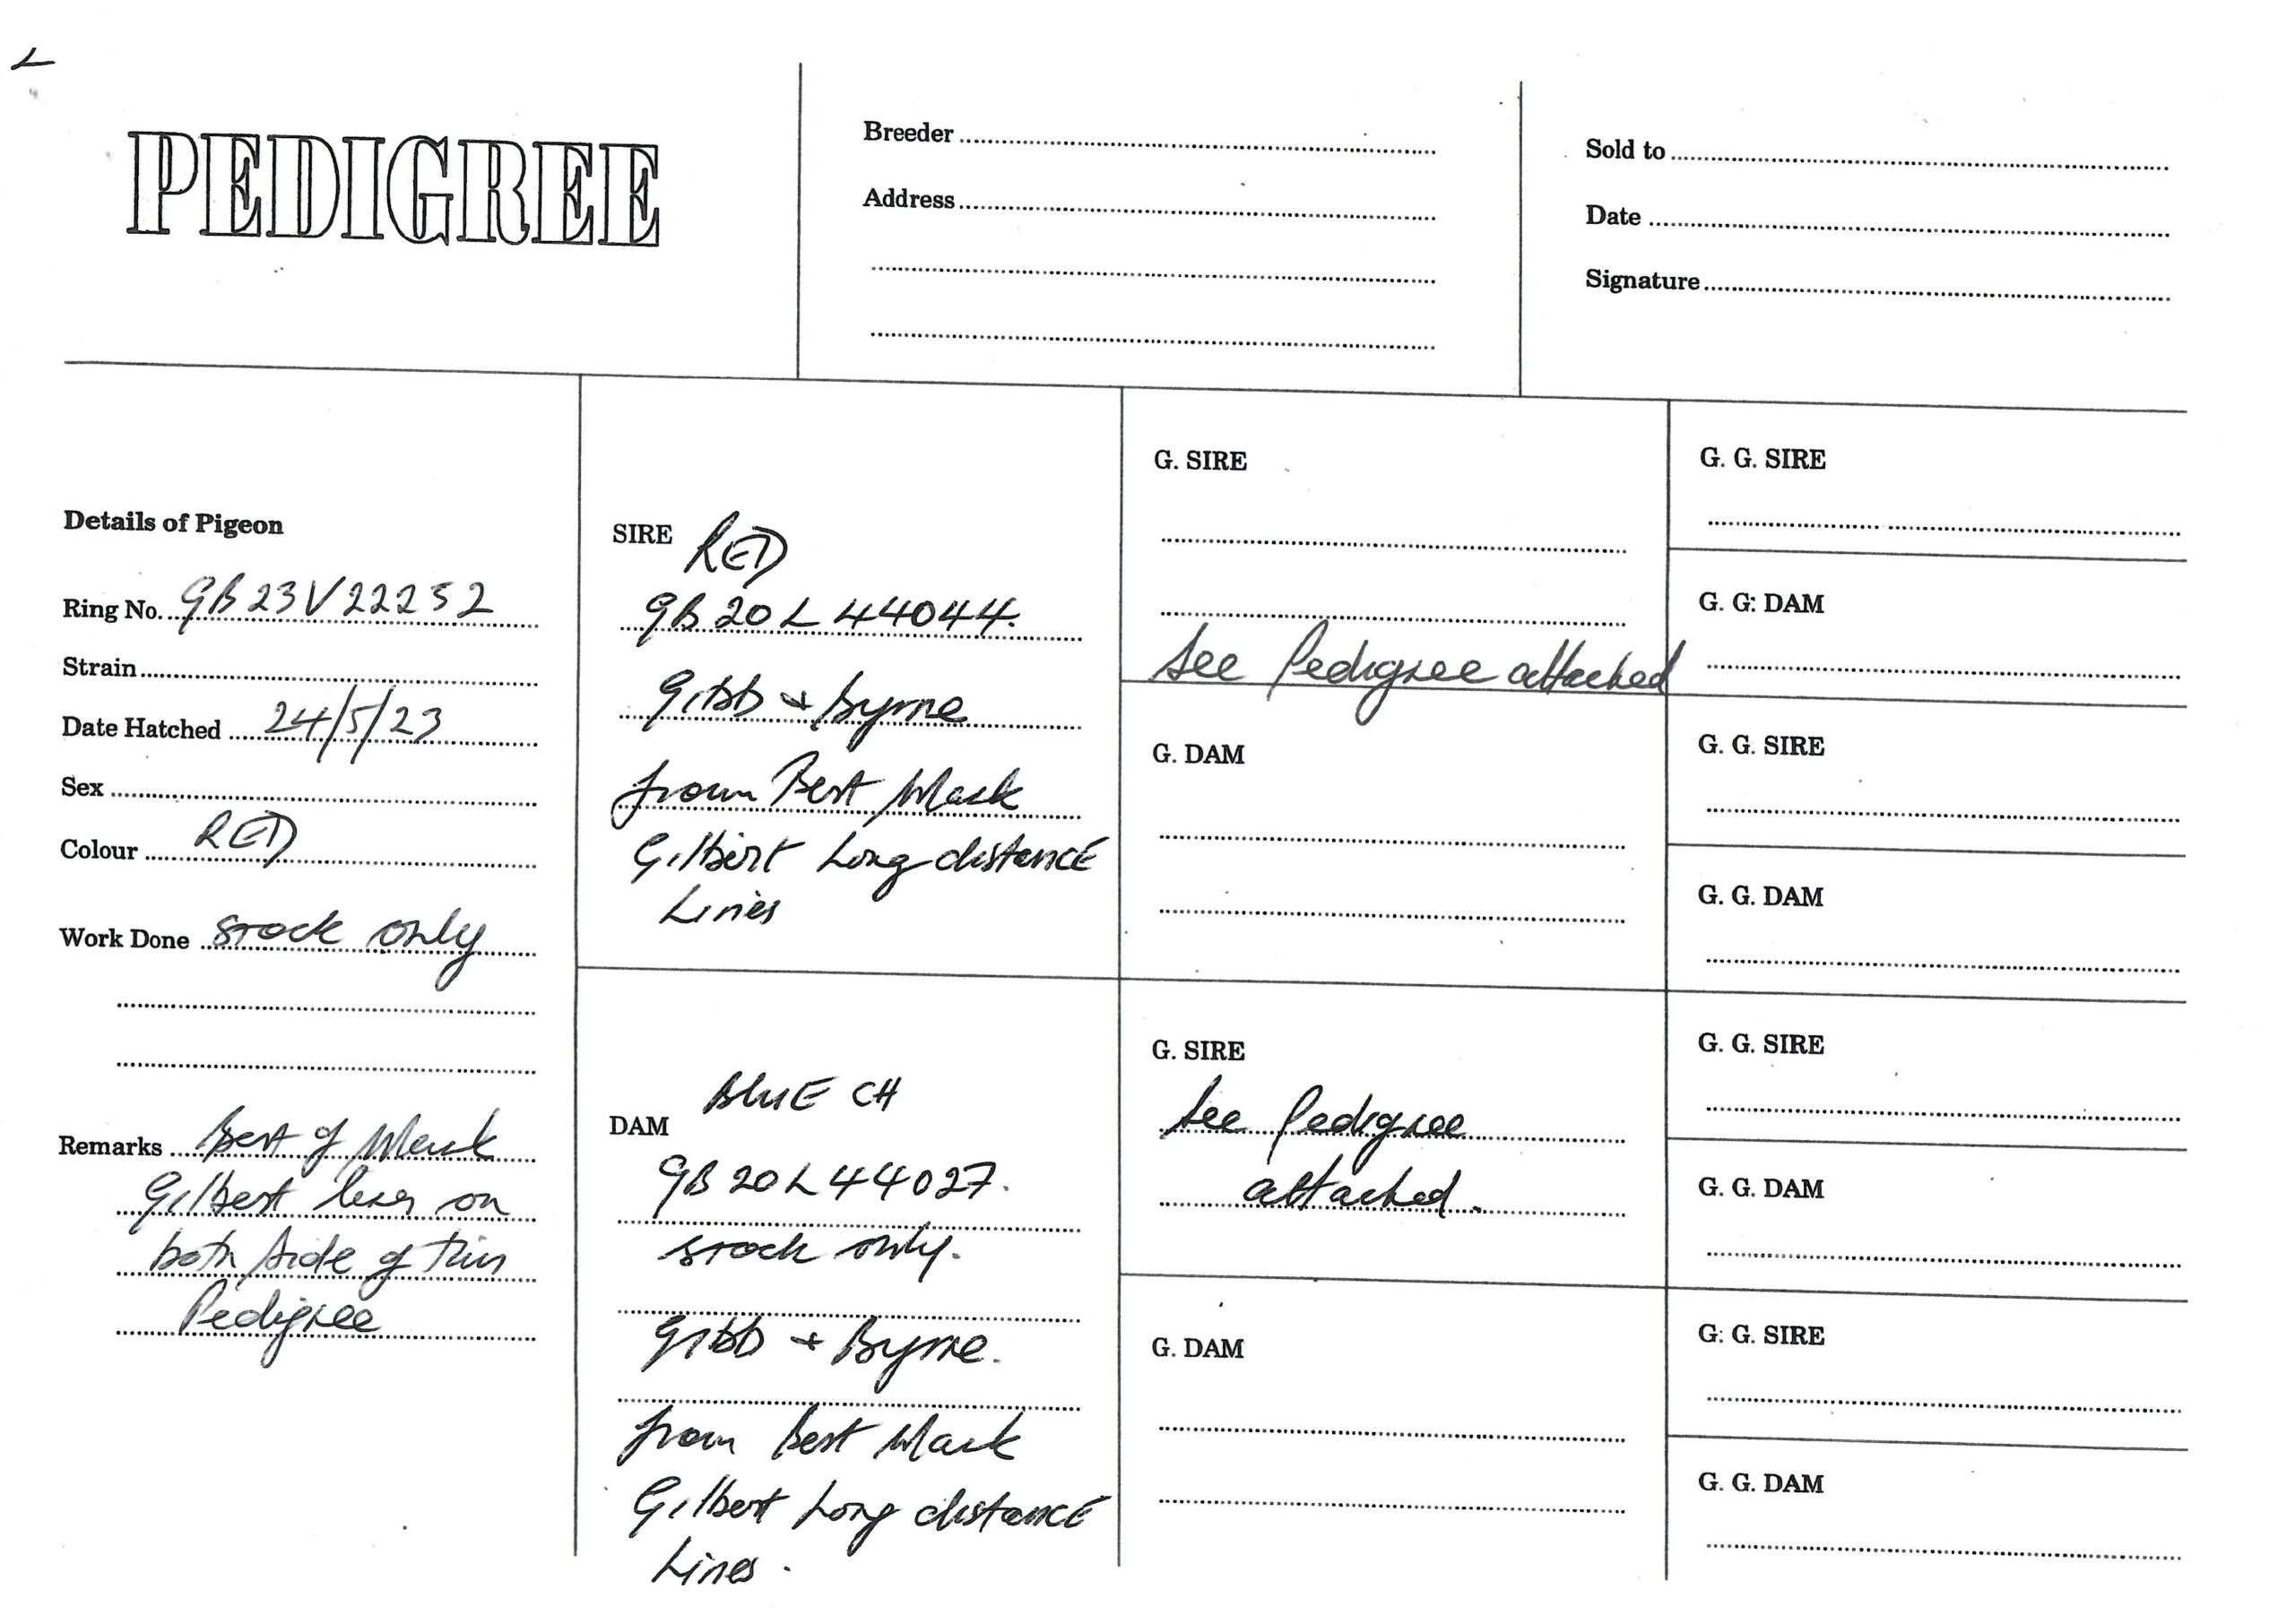 PEDIGREE
Breeder
Address
Sold to
Date
Signature
Details of Pigeon
Ring No. GB23V22252
Strain
Date Hatched 24/5/23
Sex
Colour RED
Work Done stock only
Remarks Best of Mark
Gilbert lines on
both side of this
Pedigree
SIRE RED
GB20L44044.
Gibb + Byrne
from Best Mark
Gilbert Long distance
Lines
DAM BLUE CH
GB20L44027.
stock only.
Gibb + Byrne.
from Best Mark
Gilbert Long distance
Lines.
G. SIRE
See Pedigree attached
G. DAM
G. SIRE
See Pedigree
attached.
G. DAM
G. G. SIRE
G. G. DAM
G. G. SIRE
G. G. DAM
G. G. SIRE
G. G. DAM
G. G. SIRE
G. G. DAM